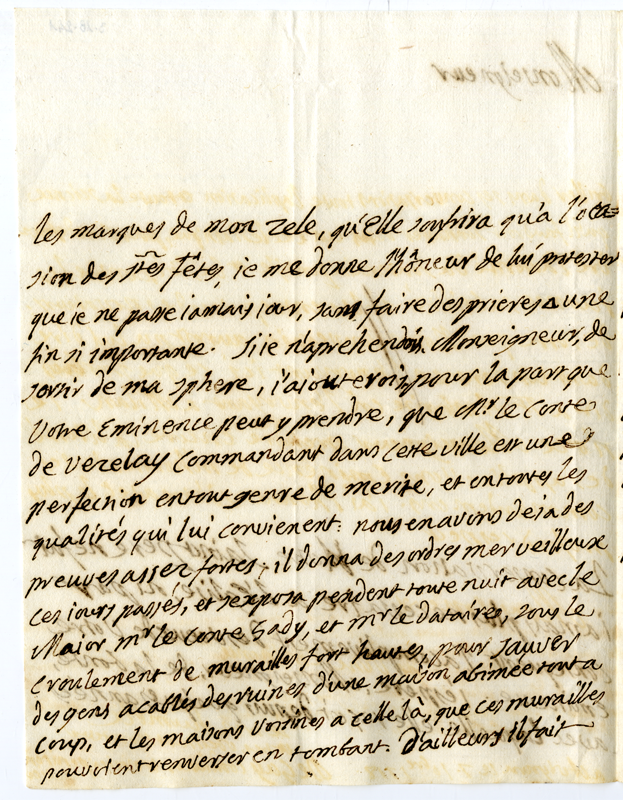 les marques de mon zele, qu'Elle soufrira qu'a l'oca=
sion des stes fêtes, ie me donne l'hôneur de lui protester
que ie ne passe iamais iour, sans faire des prieres a une
fin si importante. Si ie n'aprehendois, Monseigneur, de
sortir de ma sphere, i'aiouterois pour la part que
Votre Eminence peut y prendre, que Mr. le Conte
de Verelay Commandant dans cette ville est une
perfection en tout genre de merite, et en toutes les
qualités qui lui convienent: nous en avons deia des
preuves assez fortes; il donna des ordres merveilleux
ces iours passés, et s'exposa pendent toute nuit avec le
Maior mr le Conte Sady, et mr le dataires, sous le
croulement de murailles fort hautes, pour sauver
des gens acablés des ruines d'une maison abimée tout a
coup, et les maisons voisines a celle là, que ces murailles
pouvoient renverser en tombant. D'ailleurs il fait